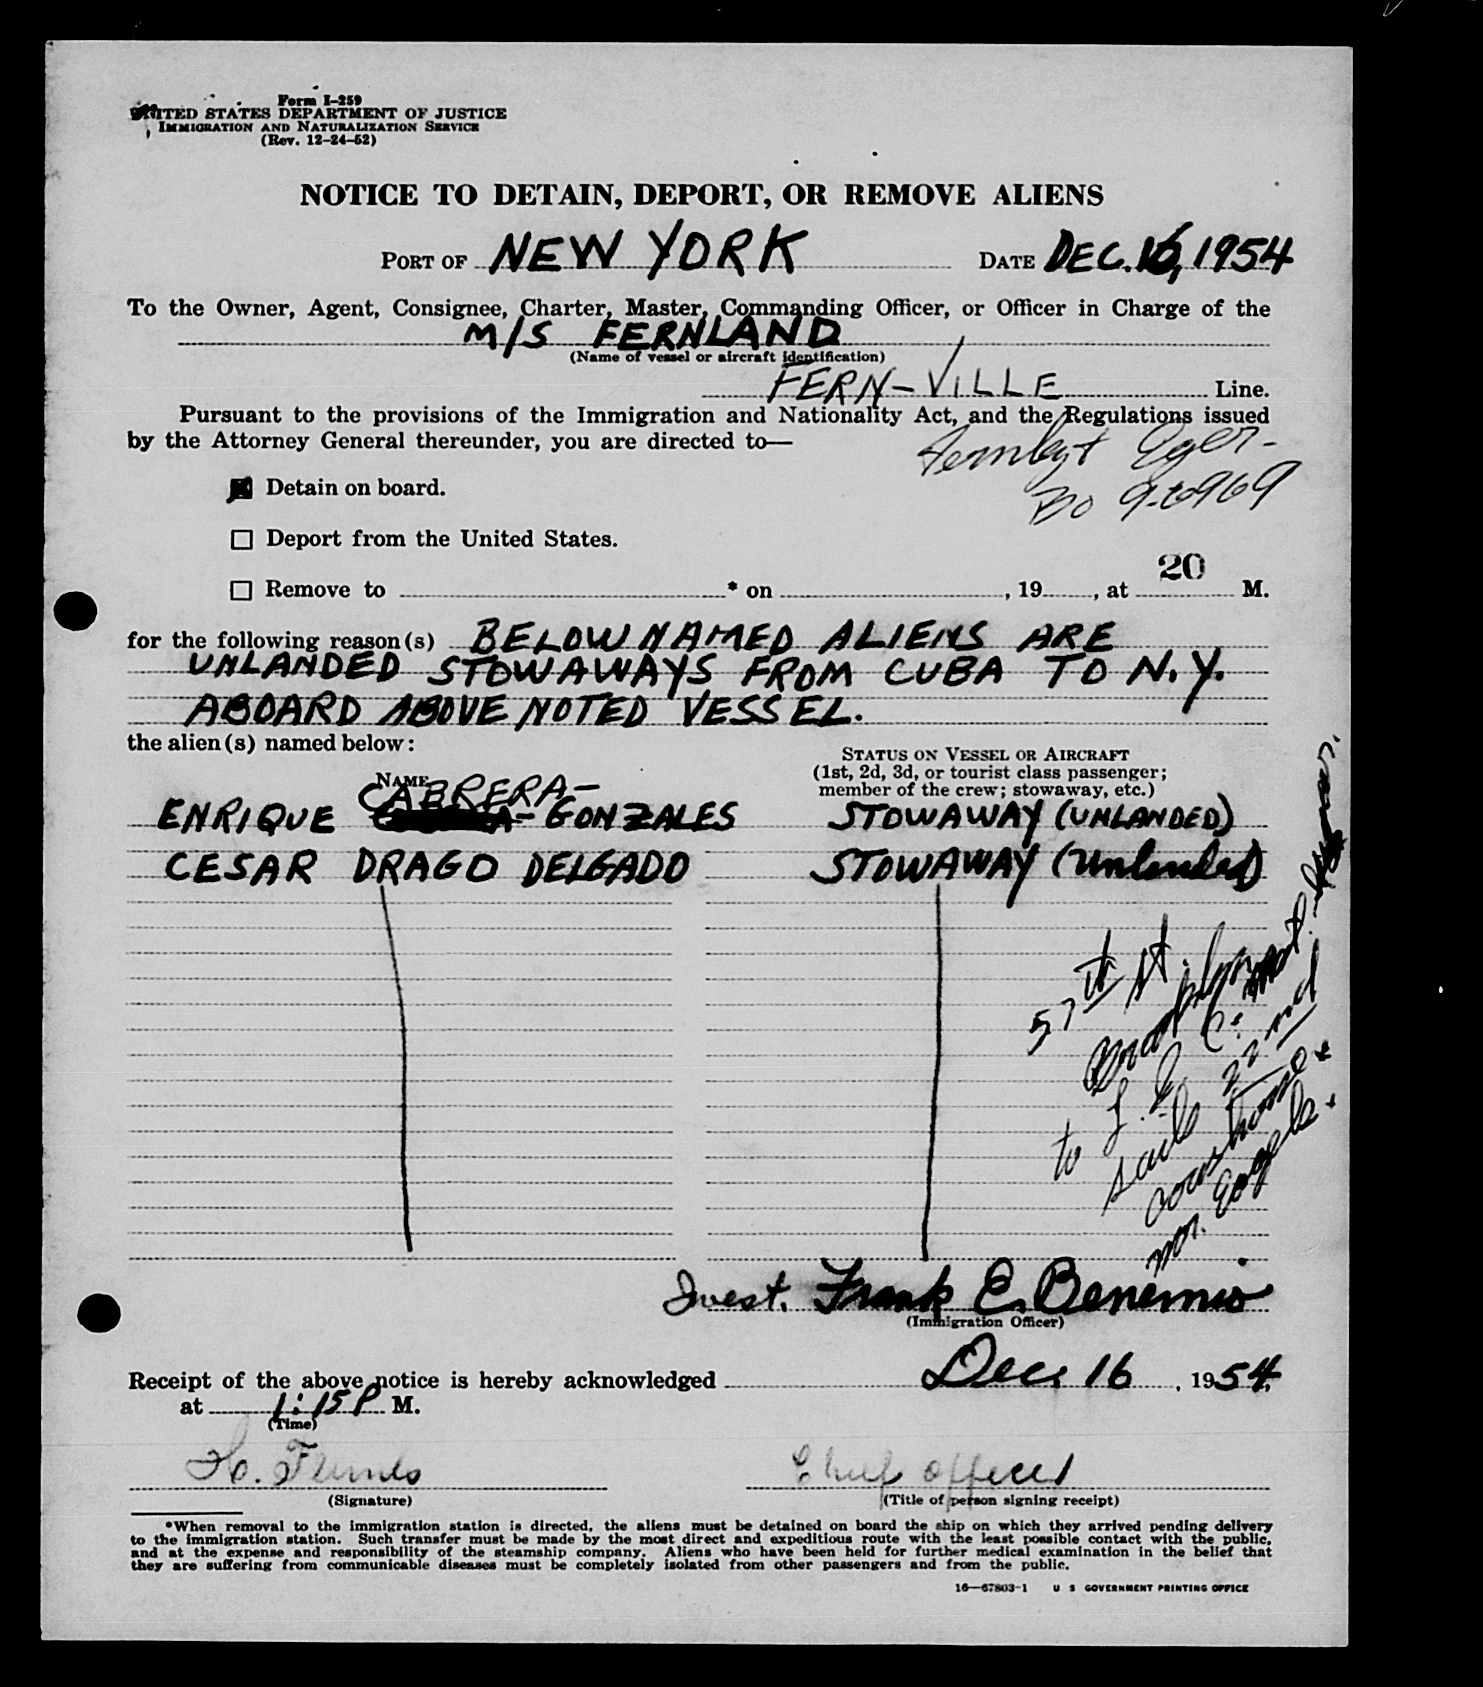 Form I-259
UNITED STATES DEPARTMENT OF JUSTICE
IMMIGRATION AND NATURALIZATION SERVICE
(Rev. 12-24-52)
NOTICE TO DETAIN, DEPORT, OR REMOVE ALIENS
PORT OF NEW YORK DATE DEC. 16, 1954
To the Owner, Agent, Consignee, Charter, Master, Commanding Officer, or Officer in Charge of the
M/S FERNLAND
(Name of vessel or aircraft identification)
FERN-VILLE Line.
Pursuant to the provisions of the Immigration and Nationality Act, and the Regulations issued
by the Attorney General thereunder, you are directed to—
Eger-
Detain on board.
Bo 9-6969
Deport from the United States.
20
Remove to * on , 19 , at M.
for the following reason(s) BELOW NAMED ALIENS ARE
UNLANDED STOWAWAYS FROM CUBA TO N.Y.
ABOARD ABOVE NOTED VESSEL.
the alien(s) named below:
STATUS ON VESSEL OR AIRCRAFT
(1st, 2d, 3d, or tourist class passenger;
member of the crew; stowaway, etc.)
NAME
CABRERA-
ENRIQUE GONZALES STOWAWAY (UNLANDED)
CESAR DRAGO DELGADO STOWAWAY (Unlanded)
57th st.
Brooklyn
to
sails 22nd
Invest. Frank E. Benemio
(Immigration Officer)
Receipt of the above notice is hereby acknowledged Dec. 16, 1954.
at 1:15 P M.
(Time)
Chief officer
(Signature) (Title of person signing receipt)
*When removal to the immigration station is directed, the aliens must be detained on board the ship on which they arrived pending delivery
to the immigration station. Such transfer must be made by the most direct and expeditious route with the least possible contact with the public,
and at the expense and responsibility of the steamship company. Aliens who have been held for further medical examination in the belief that
they are suffering from communicable diseases must be completely isolated from other passengers and from the public.
16—67803-1 U S GOVERNMENT PRINTING OFFICE